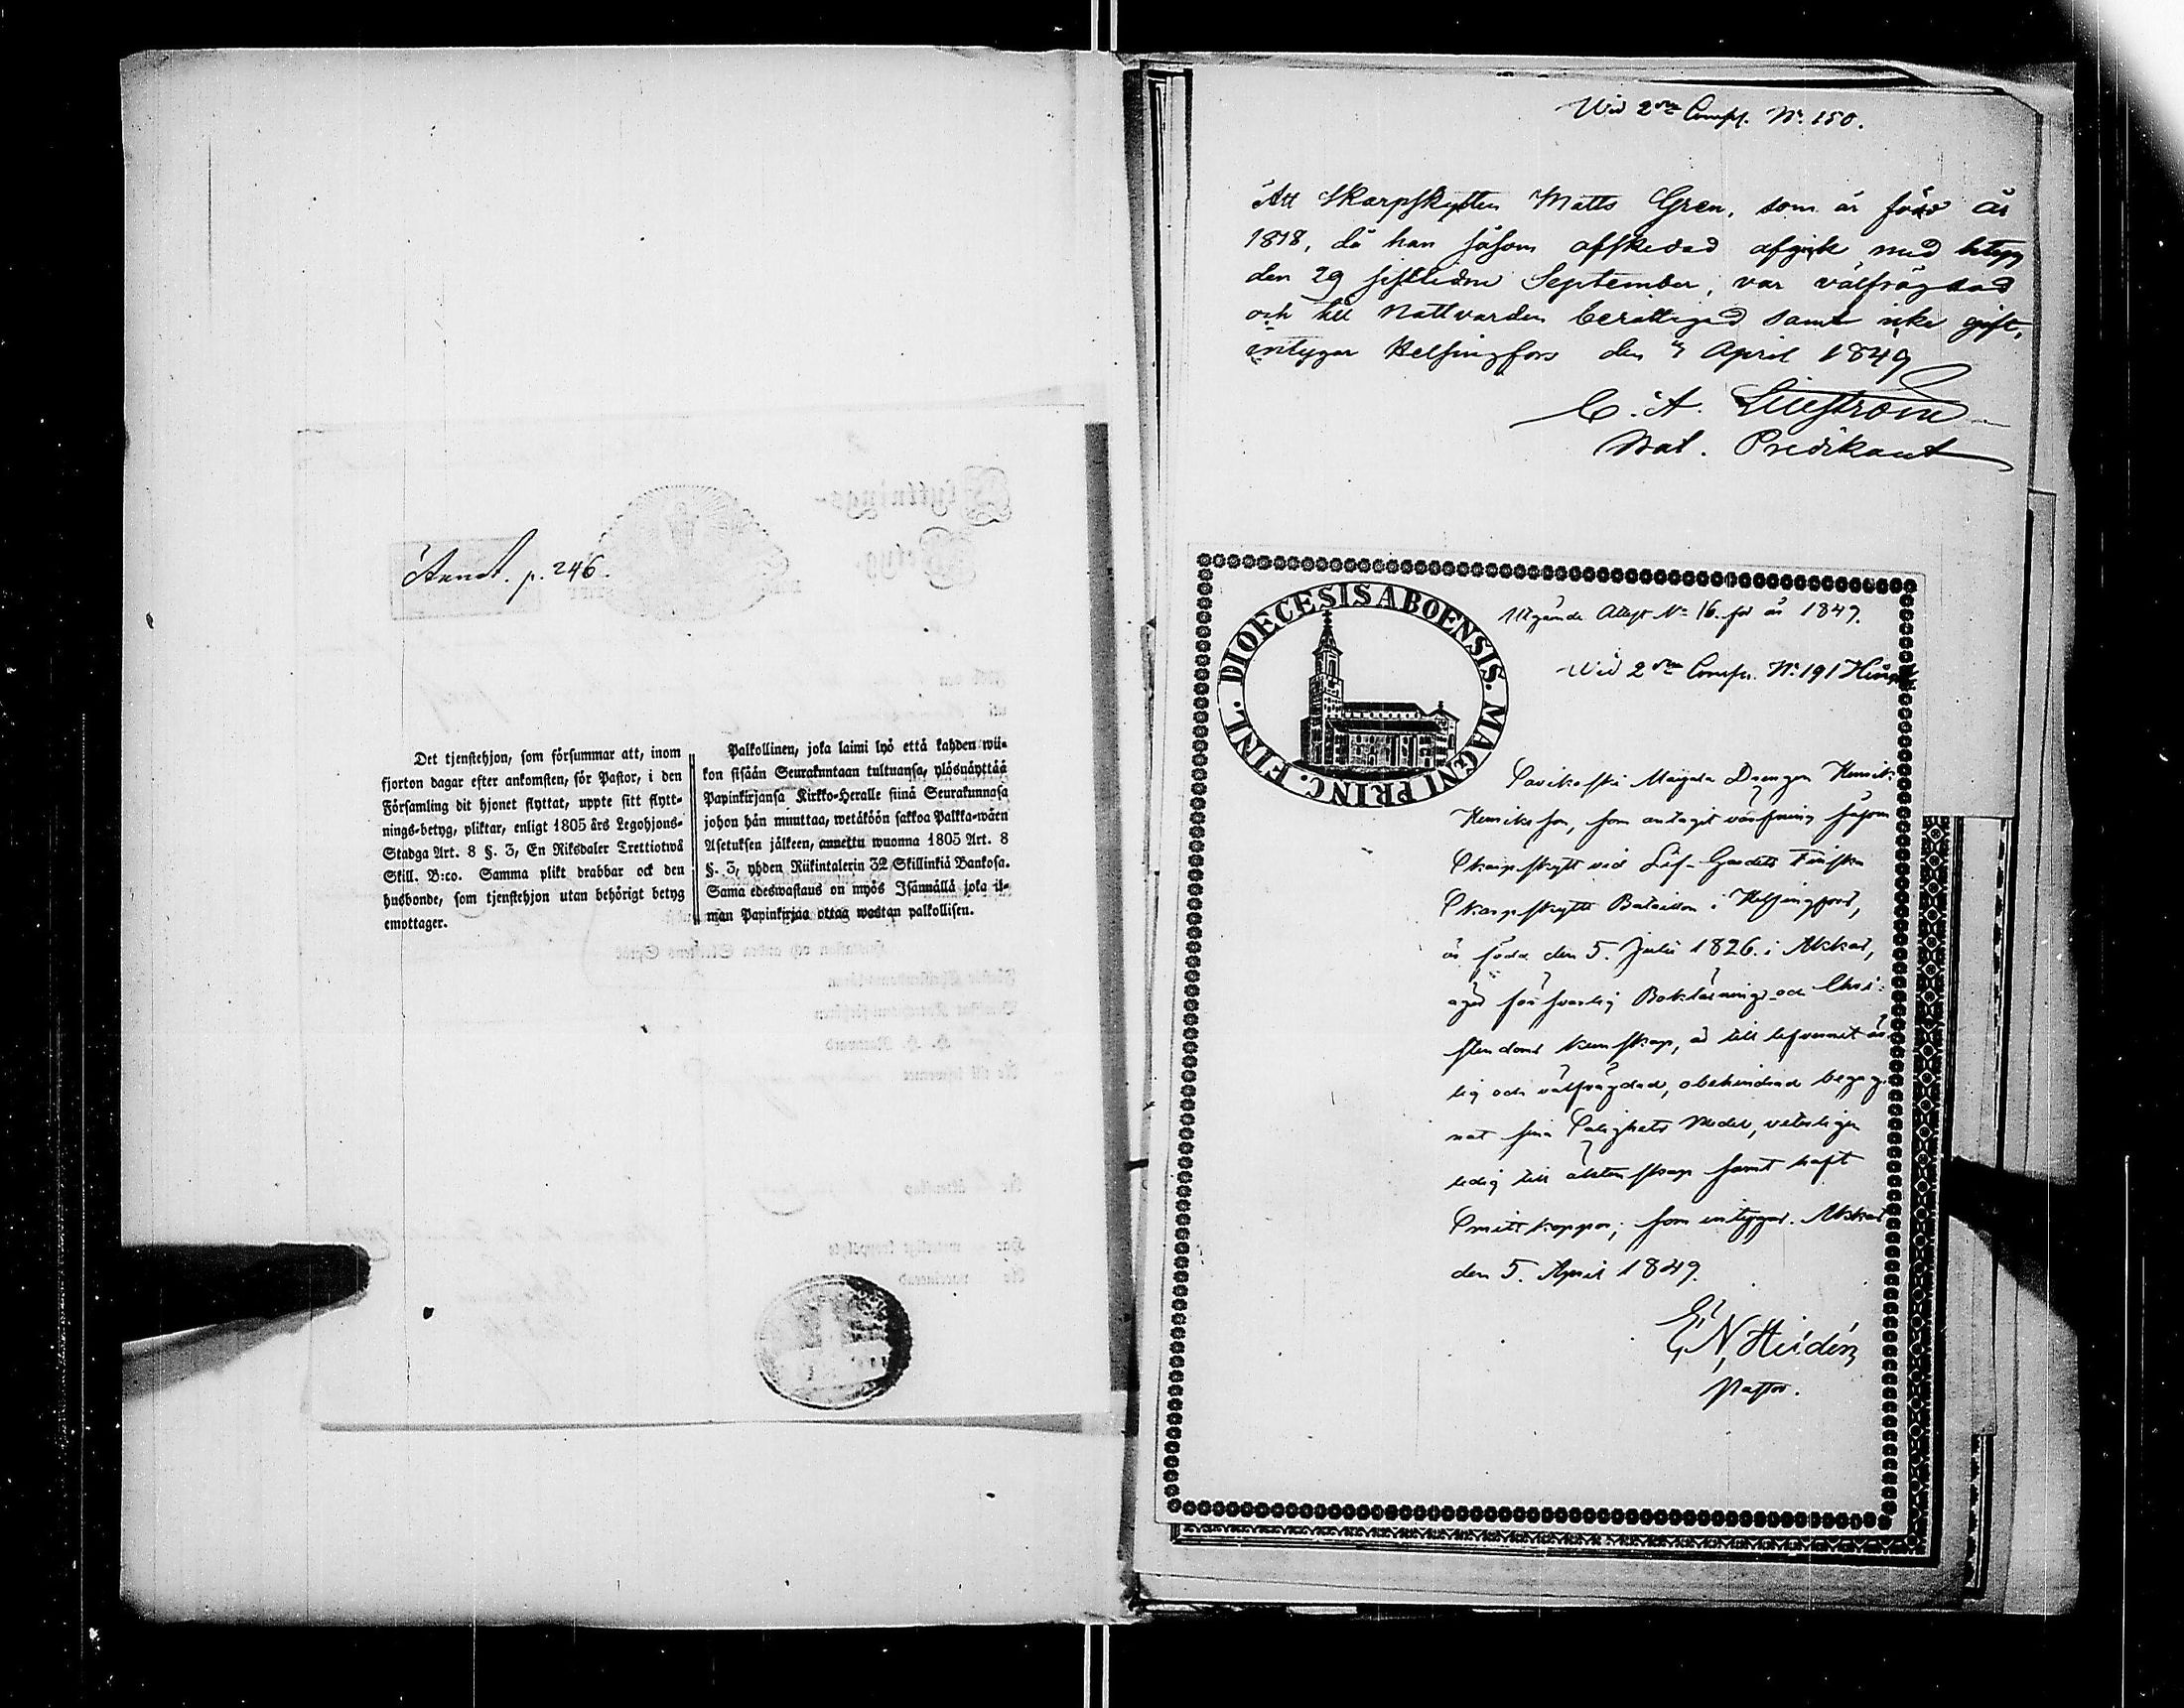 Annot. p. 246.
Det tjenstehjon, som försummar att, inom
fjorton dagar efter ankomsten, för Pastor, i den
Församling dit hjonet flyttat, uppte sitt flytt-
nings-betyg, pliktar, enligt 1805 års Legohjons-
Stadga Art. 8 §. 3, En Riksdaler Trettiotwå
Skill. B:co. Samma plikt drabbar ock den
husbonde, som tjenstehjon utan behörigt betyg
emottager.
Palkollinen, joka laimi lyö että kahden wii-
kon sisään Seurakuntaan tultuansa, ylösnäyttää
Papinkirjansa Kirkko-Heralle siinä Seurakunnasa
johon hän muuttaa, wetäköön sakkoa Palkka-wäen
Asetuksen jälkeen, annettu wuonna 1805 Art. 8
§. 3, yhden Riikintalerin 32 Skillinkiä Bankosa.
Sama edeswastaus on myös Isännällä joka il-
man Papinkirjaa ottaa wastan palkollisen.
Wid 2dra Comp. No. 150.
Att Skarpskytten Matts Gren, som är född år
1818, då han såsom afskedad afgick med betyg
den 29 sistlidne September, var välfrägdad
och till Nattvarden berättigad samt icke gift,
intygar Helsingfors den 4 April 1849
C. A. Liliström
Bat. Predikant
DIOECESIS ABOENSIS. MAGNI PRINC. FINL.
Utgående Attest No 16 för år 1849.
Wid 2dra Comp. No 191
Drengen Henrik
Henriksson, som antagit värfning såsom
Skarpskytt vid Lif-Gardets Finska
Skarpskytte Bataillon i Helsingfors,
är född den 5. Julii 1826. i Akkas,
äger försvarlig Boksläsnings och Chri-
stendoms kunskap, är till lefvernet är-
lig och välfrägdad, obehindrad begag-
nat sina Salighets Medel, veterligen
ledig till äktenskap samt haft
Smittkoppor; som intygas. Akkas
den 5. April 1849.
E, N, Heidén
Pastor.